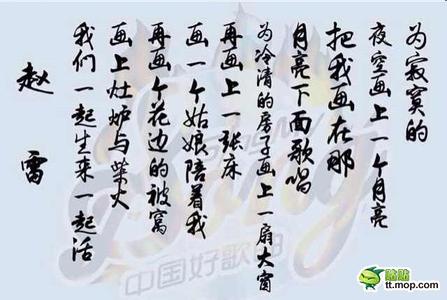 为寂寞的
夜空画上一个月亮
把我画在那
月亮下面歌唱
为冷清的房子画上一扇大窗
再画上一张床
画一个姑娘陪着我
再画个花边的被窝
画上灶炉与柴火
我们一起生来一起活
赵雷
中国好歌曲
贴贴
tt.mop.com